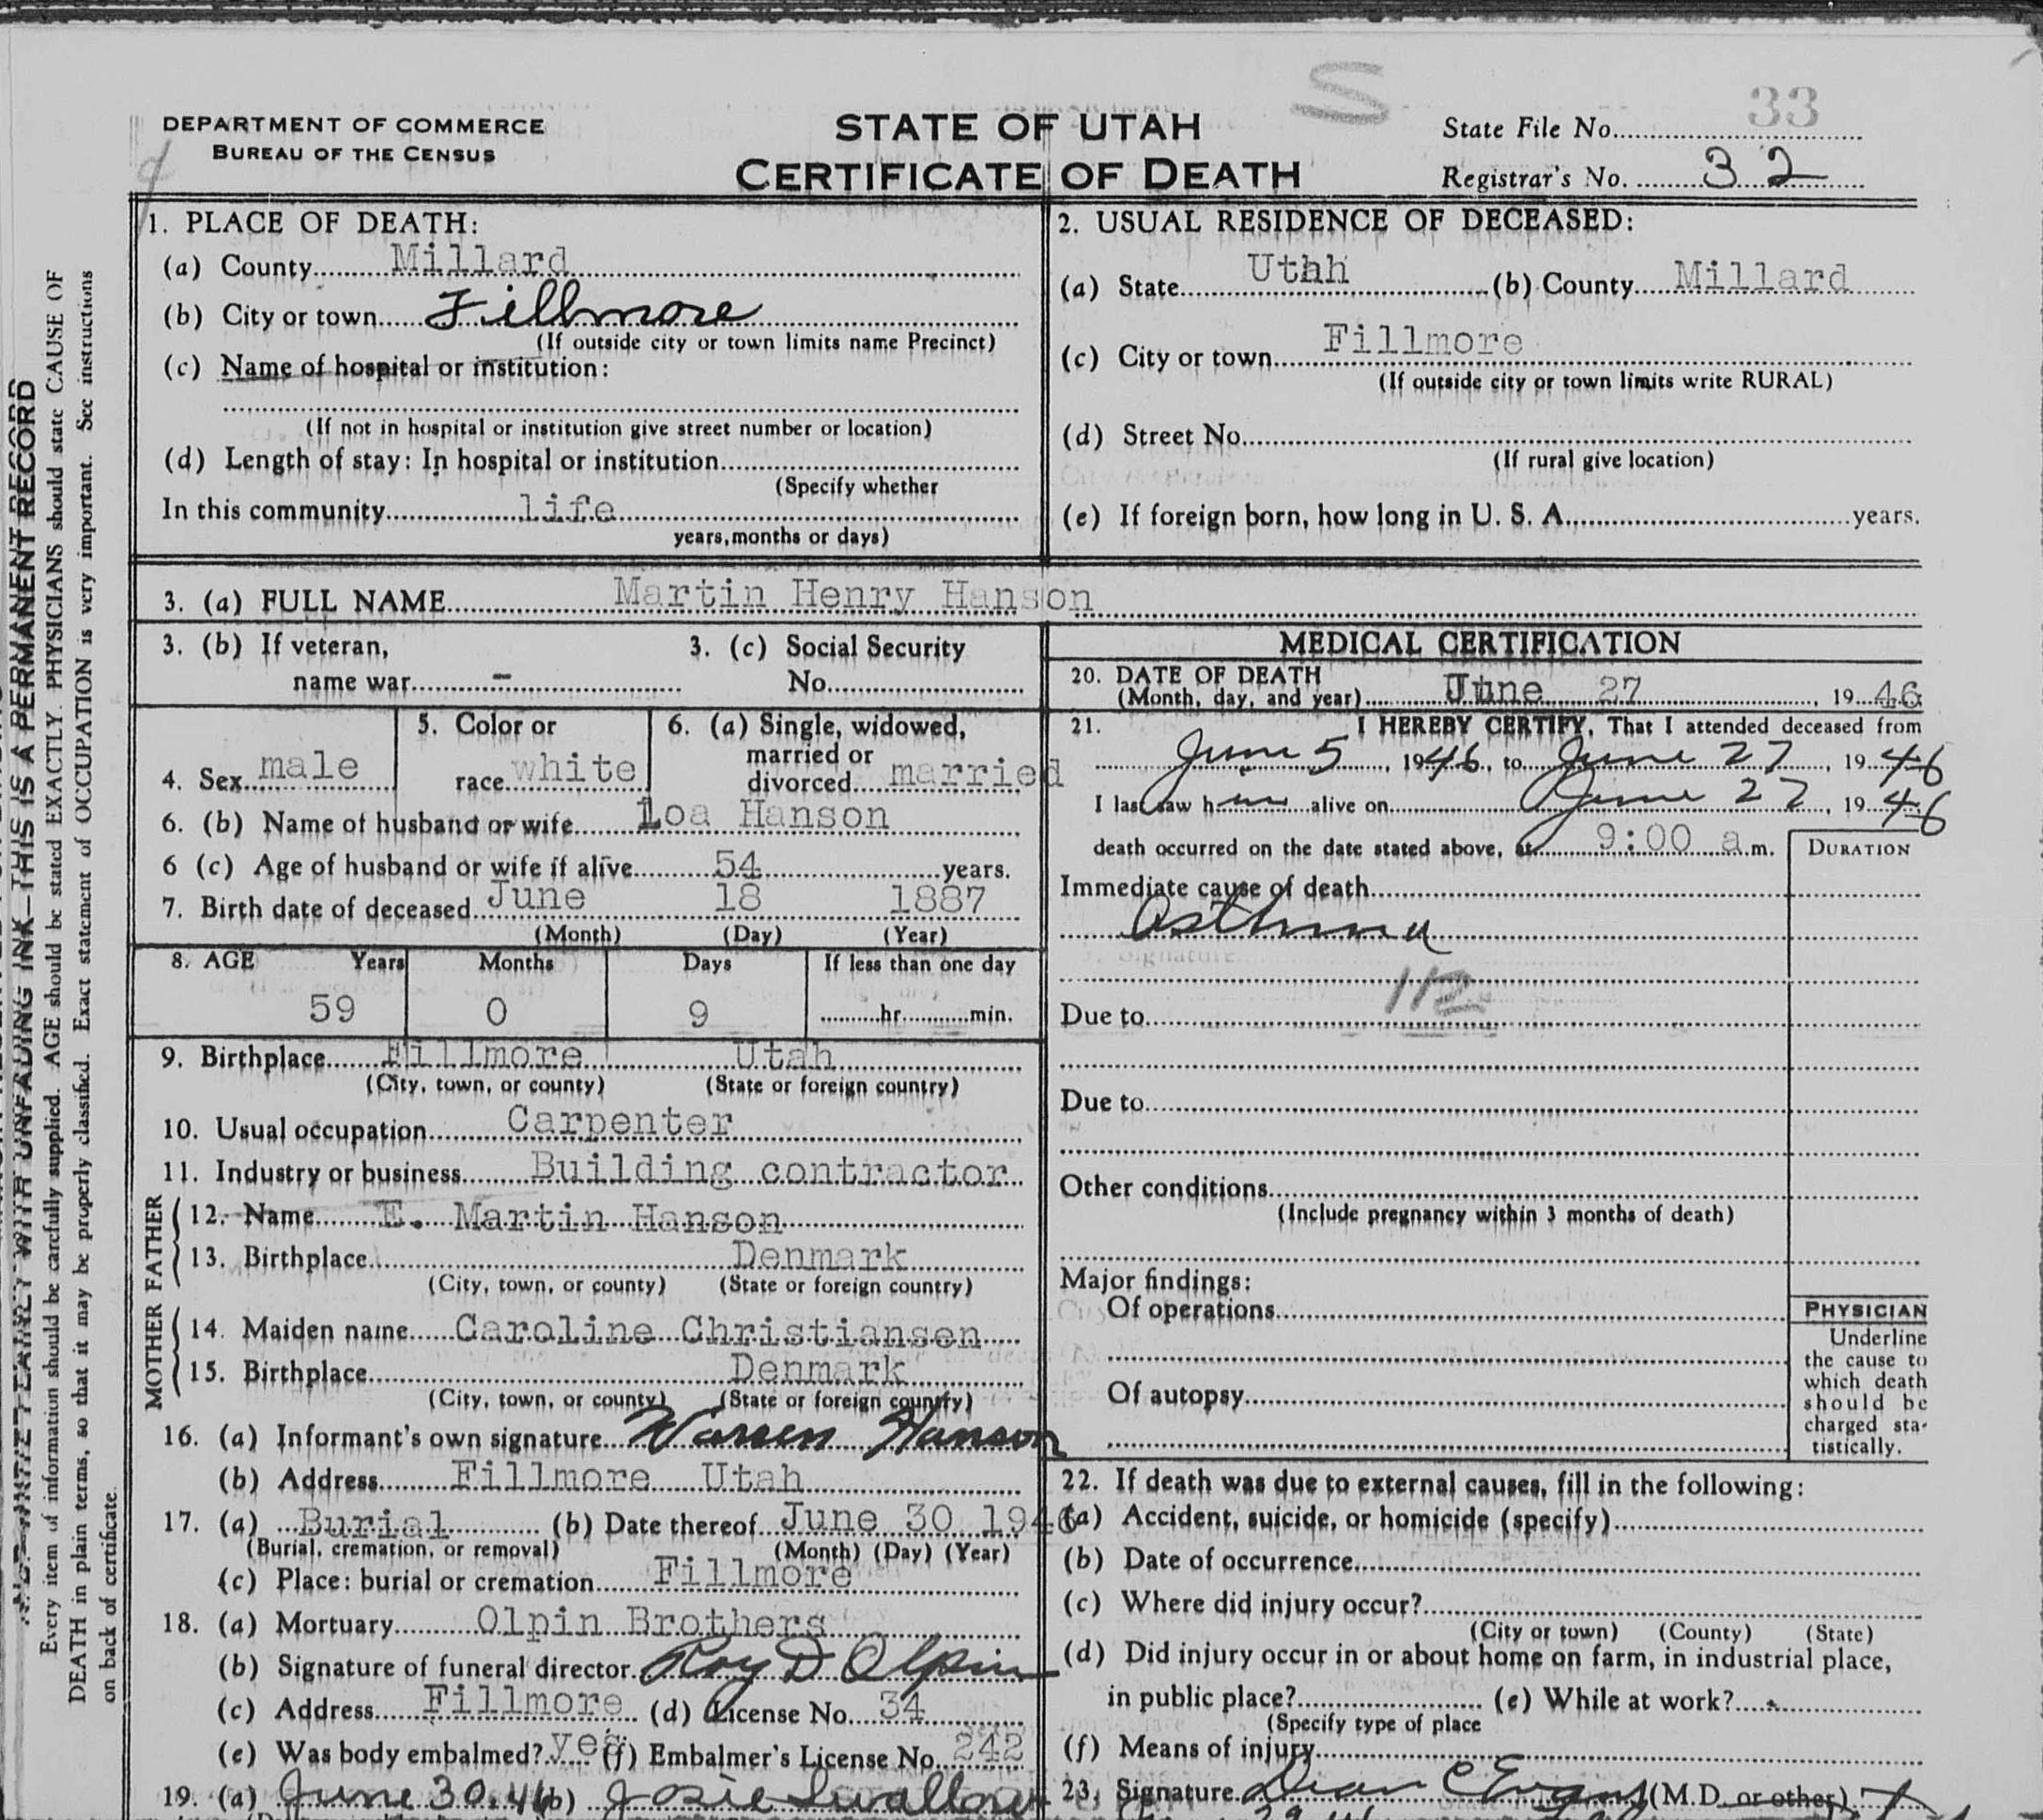 DEPARTMENT OF COMMERCE
BUREAU OF THE CENSUS
STATE OF UTAH
CERTIFICATE OF DEATH
S
State File No. 33
Registrar's No. 32
1. PLACE OF DEATH:
(a) County Millard
(b) City or town Fillmore
(If outside city or town limits name Precinct)
(c) Name of hospital or institution:
(If not in hospital or institution give street number or location)
(d) Length of stay: In hospital or institution
(Specify whether
In this community life
years, months or days)
2. USUAL RESIDENCE OF DECEASED:
(a) State Utah (b) County Millard
(c) City or town Fillmore
(If outside city or town limits write RURAL)
(d) Street No.
(If rural give location)
(e) If foreign born, how long in U. S. A. years.
3. (a) FULL NAME Martin Henry Hanson
3. (b) If veteran,
name war -
3. (c) Social Security
No.
4. Sex male
5. Color or
race white
6. (a) Single, widowed,
married or
divorced married
6. (b) Name of husband or wife Loa Hanson
6 (c) Age of husband or wife if alive 54 years.
7. Birth date of deceased June 18 1887
(Month) (Day) (Year)
8. AGE Years Months Days If less than one day
59 0 9 hr. min.
9. Birthplace Fillmore Utah
(City, town, or county) (State or foreign country)
10. Usual occupation Carpenter
11. Industry or business Building contractor
FATHER
12. Name E. Martin Hanson
13. Birthplace Denmark
(City, town, or county) (State or foreign country)
MOTHER
14. Maiden name Caroline Christiansen
15. Birthplace Denmark
(City, town, or county) (State or foreign country)
16. (a) Informant's own signature Warren Hanson
(b) Address Fillmore Utah
17. (a) Burial (b) Date thereof June 30 1946
(Burial, cremation, or removal) (Month) (Day) (Year)
(c) Place: burial or cremation Fillmore
18. (a) Mortuary Olpin Brothers
(b) Signature of funeral director Roy D Olpin
(c) Address Fillmore (d) License No. 34
(e) Was body embalmed? yes (f) Embalmer's License No. 242
19. (a) June 30, 46 (b) Josie Swallow
MEDICAL CERTIFICATION
20. DATE OF DEATH
(Month, day, and year) June 27, 1946
21. I HEREBY CERTIFY, That I attended deceased from
June 5, 1946, to June 27, 1946
I last saw him alive on June 27, 1946
death occurred on the date stated above, at 9:00 a.m.
DURATION
Immediate cause of death
Asthma
112
Due to
Due to
Other conditions
(Include pregnancy within 3 months of death)
Major findings:
Of operations
Of autopsy
PHYSICIAN
Underline
the cause to
which death
should be
charged sta-
tistically.
22. If death was due to external causes, fill in the following:
(a) Accident, suicide, or homicide (specify)
(b) Date of occurrence
(c) Where did injury occur?
(City or town) (County) (State)
(d) Did injury occur in or about home on farm, in industrial place,
in public place? (e) While at work?
(Specify type of place
(f) Means of injury
23. Signature Dean C Evans (M.D. or other)
THIS IS A PERMANENT RECORD
Every item of information should be carefully supplied. AGE should be stated EXACTLY. PHYSICIANS should state CAUSE OF
DEATH in plain terms, so that it may be properly classified. Exact statement of OCCUPATION is very important. See instructions
on back of certificate.